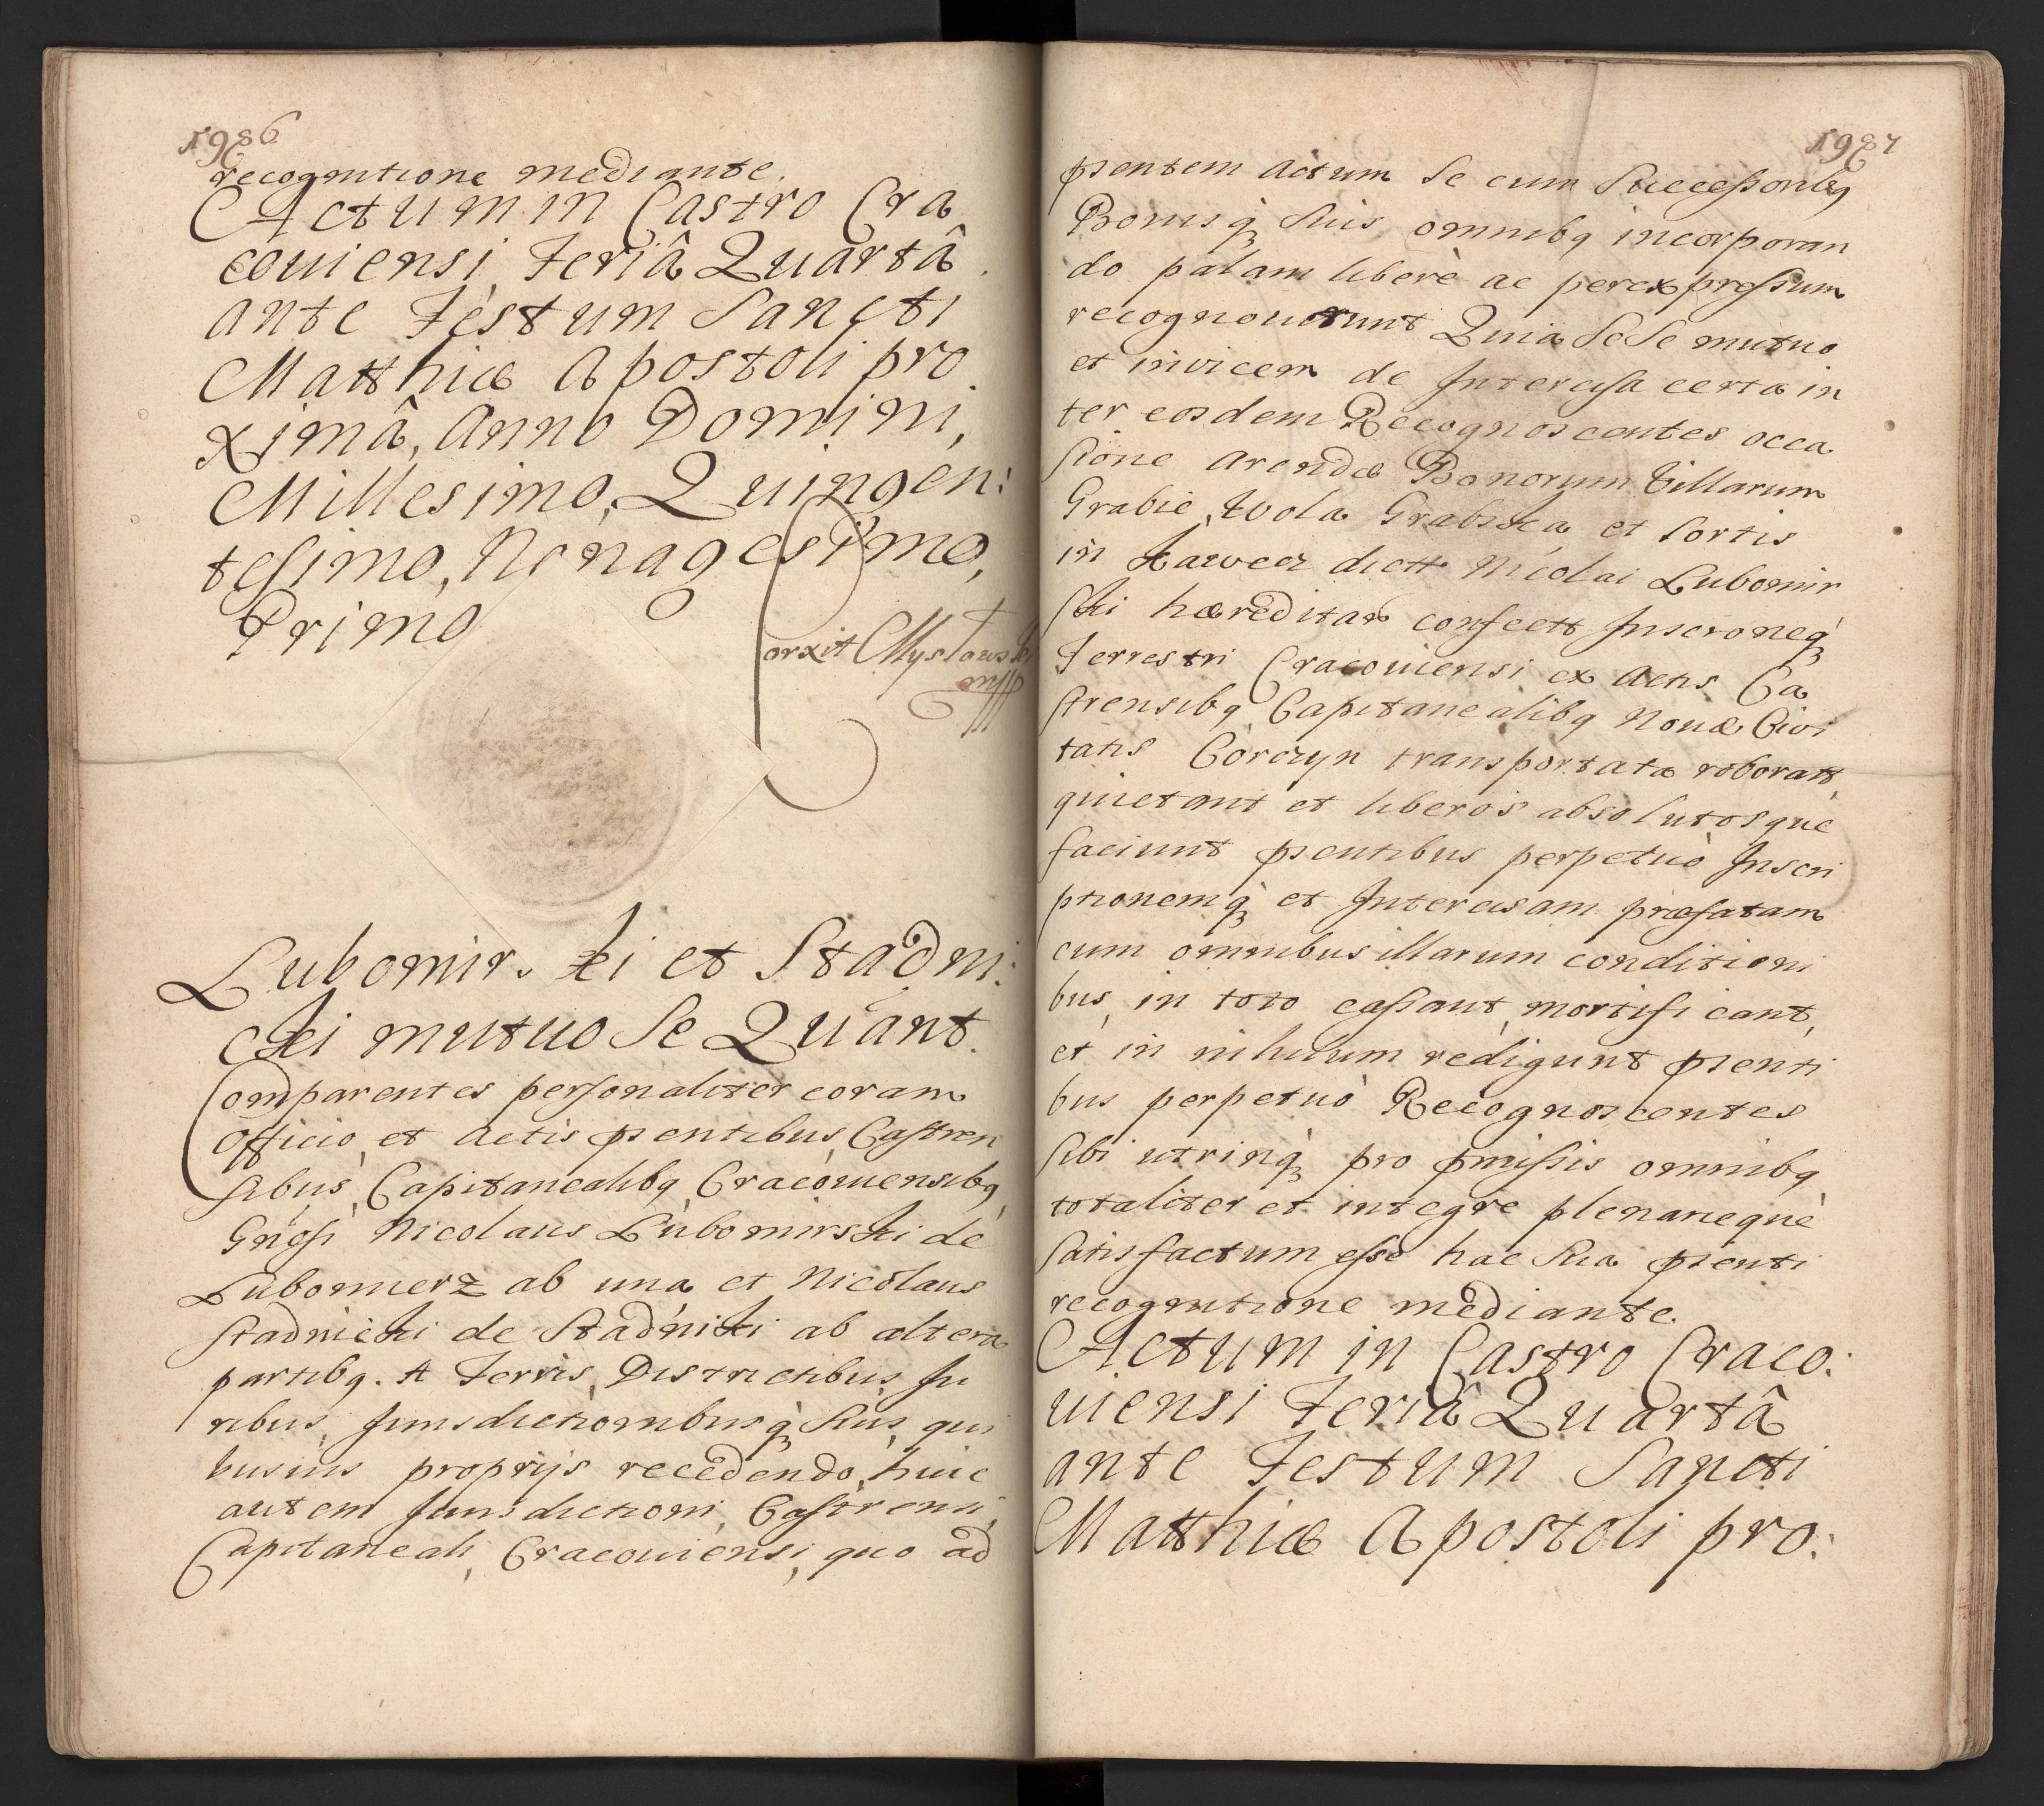 1986
recognitione mediante.
Actum in Castro Cra
coviensi, Feriâ Quartâ
ante Festum Sancti
Matthiæ Apostoli pro
ximâ, Anno Domini,
Millesimo, Quingen:
tesimo, Nonagesimo,
Primo
Corxit Myslowski
mpp
Lubomirski et Stadni:
cki mutuo Se Quant.
Comparentes personaliter coram
Officio et Actis pntibus Castren
sibus, Capitanealibq Cracoviensibq
Gnosi Nicolaus Lubomirski de
Lubomierz ab una et Nicolaus
Stadnicki de Stadniki ab altera
partibq. A Terris, Districtibus, Ju
ribus, Jurisdictionibusq Suis, qui
busuis proprijs recedendo, huic
autem Jurisdictioni, Castrensi,
Capitaneali, Cracouiensi, quo ad
1987
pntem Actum Se cum Successoribq
Bonisq Suis omnibq incorporan
do palam liberè ac per expressum
recognouerunt Quia Se Se mutuo
et invicem de Intercisa certa in
ter eosdem Recognoscentes occa
sione Arendæ Bonorum Villarum
Grabie, Wola Grabska et Sortis
in dictt Nicolai Lubomir
ski hæreditar confectt Inscroneq
Terrestri Cracouiensi ex Actis Ca
strensibq Capitanealibq Nouæ Civi
tatis Corczyn transportata roboratt
quietant et liberos absolutosque
faciunt pntibus perpetuò Inscri
ptionemq et Intercisam præfatam
cum omnibus illarum conditioni
bus, in toto cassant, mortificant,
et in nihilum redigunt pnti
bus perpetuò Recognoscentes
Sibi utrinq pro pmissis omnibq
totaliter et integre plenarieque
Satisfactum esse hac Sua pnti
recognitione mediante.
Actum in Castro Craco:
uiensi Feriâ Quartâ
ante Festum Sancti
Matthiæ Apostoli pro: